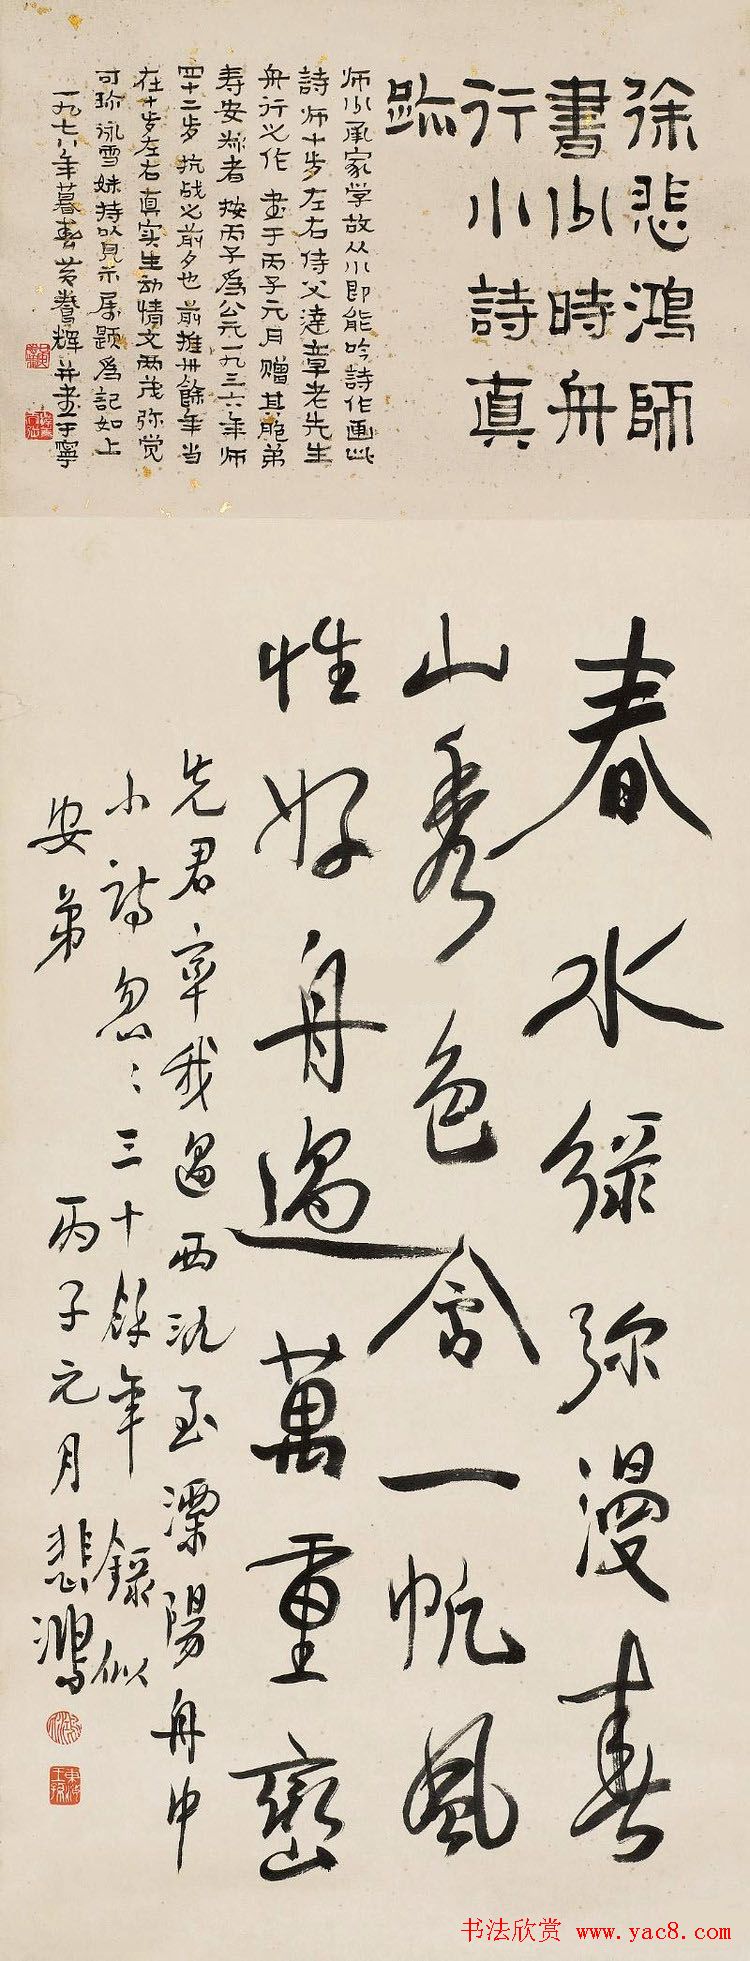 徐悲鴻師
書少時舟
行小詩真
跡
师少承家学故从小即能吟詩作画此
詩师十岁左右侍父達章老先生
舟行之作 書于丙子元月赠其胞弟
寿安叔者 按丙子為公元一九三六年师
四十二岁抗战之前夕也 前推卅餘年当
在十岁左右真实生动情文两茂弥觉
可珍 咏雪妹持以見示属题為記如上
一九七八年暮春黄養辉并書于寧
春水綠弥漫春
山秀色含一帆風
性好舟過萬重巒
先君率我過西氿至溧陽舟中
小詩忽〻三十餘年 錄似
安弟 丙子元月 悲鴻
书法欣赏 www.yac8.com